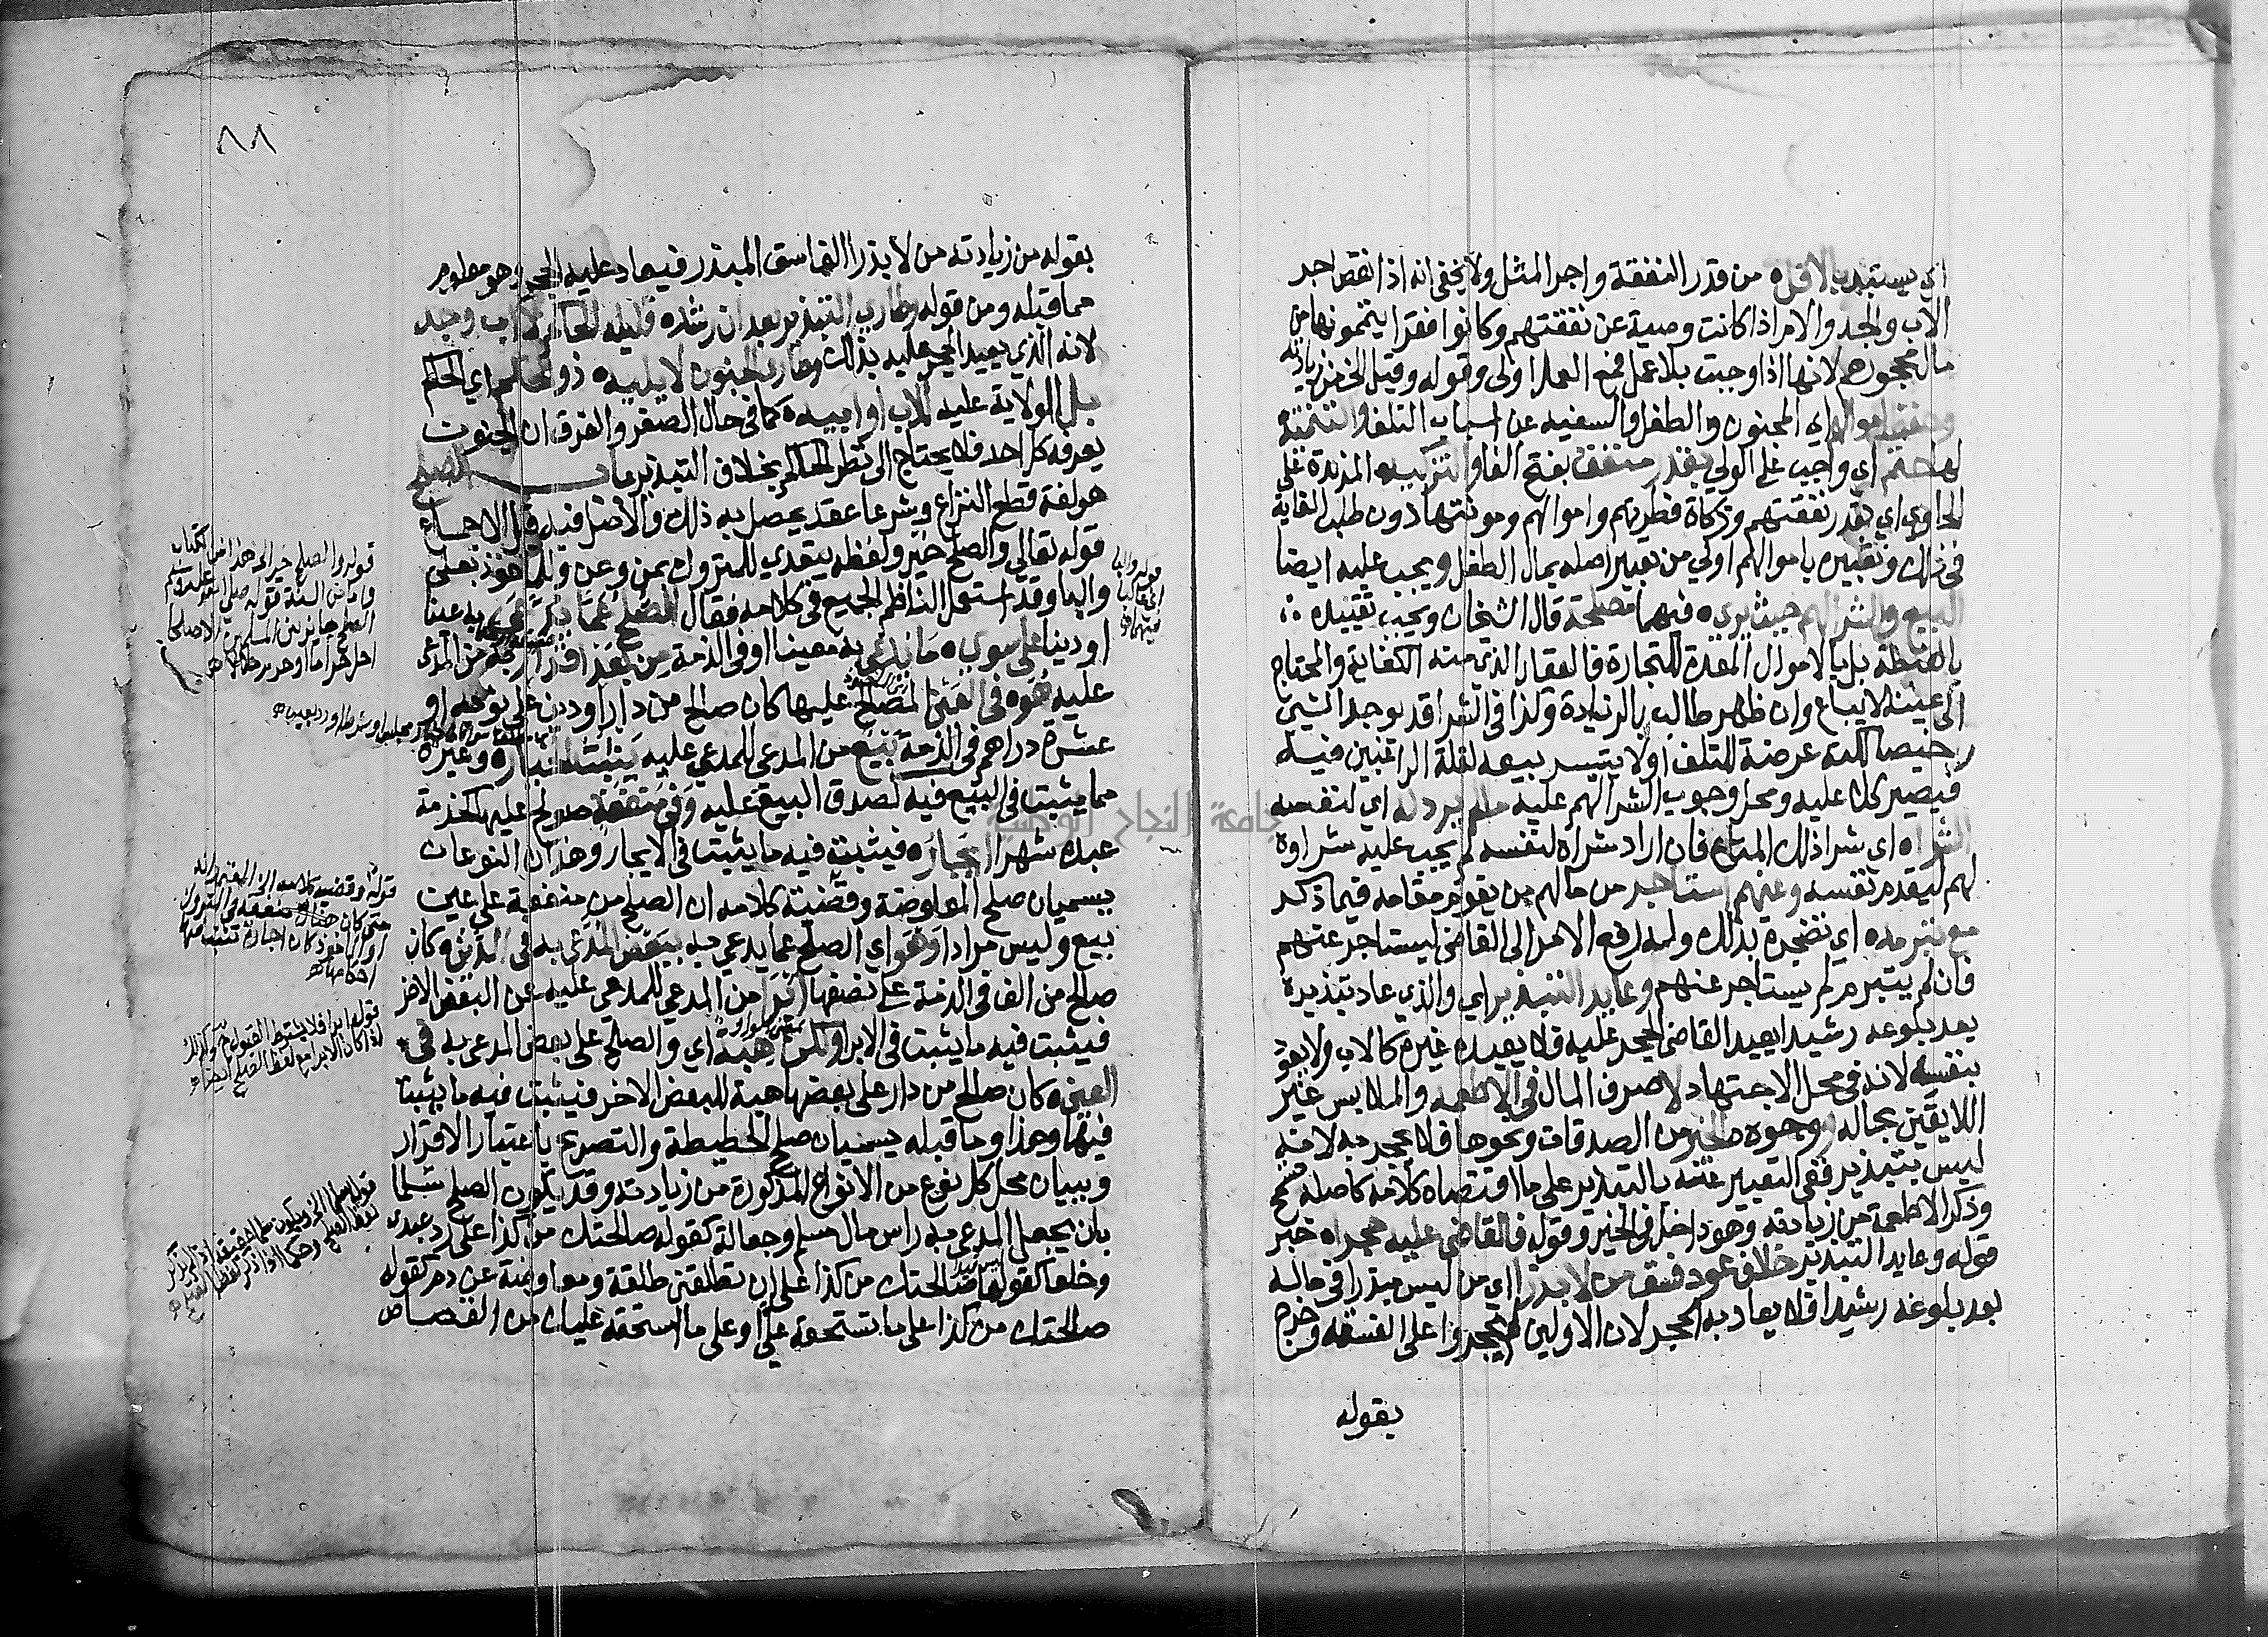 اي يستبد بالاقل من قدر النفقة واجر المثل ولا يخفى انه اذا نقص اجر
الاب والجد والام اذا كانت وصية عن نفقتهم وكانوا فقرا يتممونها من
مال محجورهم لانها اذا وجبت بلا عمل فمع العمل اولى وقوله وقيل الخ من زيادته
وحفظ اموالهم اي المجنون والطفل والسفيه عن اسباب التلف والتنمية
لها حتم اي واجب على الولي بقدر منفق بفتح الفا والتزكية المزيدة على
الحاوي اي بقدر نفقتهم وزكاة فطرتهم واموالهم ومونتها دون طلب الغاية
في ذلك وتعبيره باموالهم اولى من تعبير اصله بمال الطفل ويجب عليه ايضا
البيع والشرا لهم حيث يرى فيهما مصلحة قال الشيخان ويجب تقييده
بالغبطة بل بالاموال المعدة للتجارة فالعقار الذي منه الكفاية والمحتاج
الى عينه لا يباع وان ظهر طالب بالزيادة وكذا في الشرا قد يوجد الشي
رخيصا لكنه عرضة للتلف او لا يتيسر بيعه لقلة الراغبين فيه
فيصير كلا عليه ومحل وجوب الشرا لهم عليه ما لم يرد له اي لنفسه
الشراه اي شرا ذلك المتاع فان اراد شراه لنفسه لم يجب عليه شراوه
لهم ليقدم نفسه وعنهم استاجر من مالهم من يقوم مقامه فيما ذكر
مع تبرمه اي تضجره بذلك وله رفع الامر الى القاضي ليستاجر عنهم
فان لم يتبرم لم يستاجر عنهم وعايد التبذير اي والذي عاد تبذيره
بعد بلوغه رشيدا يعيد القاضي الحجر عليه فلا يعيده غيره كالاب ولا يعود
بنفسه لانه في محل الاجتهاد لا صرف المال في الاطعمه والملابس غير
اللايقين بحاله ووجوه الخير من الصدقات ونحوها فلا يحجر به لانه
ليس بتبذير ففي التعبير عنه بالتبذير على ما اقتضاه كلامه كاصله تسمح
وذكر الاطعمة من زيادته وهو داخل في الخير وقوله فالقاضي عليه حجراه خبر
قوله وعايد التبذير خلاف عود فسق من لا بذرا اي من ليس مبذرا في ماله
بعد بلوغه رشيدا فلا يعاد به الحجر لان الاولين لم يحجروا على الفسقة وخرج
بقوله
٨٨
بقوله من زيادته من لا بذرا الفاسق المبذر فيعاد عليه الحجر وهو معلوم
مما قبله ومن قوله وطاري التبذير بعد ان رشده فليله الحاكم لا اب وجد
لانه الذي يعيد الحجر عليه بذلك وطاري الجنون لا يليه ذو الحكم اي الحاكم
بل الولاية عليه للاب او ابيه كما في حال الصغر والفرق ان الجنون
يعرفه كل احد فلا يحتاج الى نظر الحاكم بخلاف التبذير باب الصلح
هو لغة قطع النزاع وشرعا عقد يحصل به ذلك والاصل فيه قبل الاجماع
قوله تعالى والصلح خير ولفظه يتعدى للمتروك بمن وعن وللماخوذ بعلى
والبا وقد استعمل الناظم الجميع في كلامه فقال الصلح عما يدعى به عينا
او دينا على سوى ما يدعى به معينا او في الذمة من بعد اقرار به من المدعى
عليه هو في العين المصالح عليها كان صالح من دار او دين على ثوب او
عشرة دراهم في الذمة بيع من المدعي للمدعى عليه يثبت الخيار وغيره
مما يثبت في البيع فيه لصدق البيع عليه وفي منفعة صولح عليها كخدمة
عبده شهرا ايجاره فيثبت فيه ما يثبت في الايجار وهذان النوعان
يسميان صلح المعاوضة وقضية كلامه ان الصلح من منفعة على عين
بيع وليس مرادا وهو اي الصلح عما يدعى به ببعض المدعى به في الدين وكان
صالح من الف في الذمة على نصفها ابرا من المدعي للمدعى عليه عن البعض الاخر
فيثبت فيه ما يثبت في الابرا ولكن هبة اي والصلح على بعض المدعى به في
العين كان صالح من دار على بعضها هبة للبعض الاخر فيثبت فيه ما يثبت
فيها وهذا وما قبله يسميان صلح الحطيطة والتصريح باعتبار الاقرار
وببيان محل كل نوع من الانواع المذكورة من زيادته وقد يكون الصلح سلما
بان يجعل المدعى به راس مال سلم وجعالة كقوله صالحتك من كذا على رد عبدي
وخلعا كقولها صالحتك من كذا على ان تطلقني طلقة ومعاوضة عن دم كقوله
صالحتك من كذا على ما تستحقه علي او على ما استحقه عليك من القصاص
قوله والصلح خير الى هذا من الكتاب
واما من السنة قوله صلى الله عليه وسلم
الصلح جايز بين المسلمين الا صلحا
احل حراما او حرم حلالا
قوله وقضية كلامه الخ
متى كان هناك منفعة في المتروك
او الماخوذ كان اجارة تثبت فيها
احكامها
قوله ابرا فلا يشترط القبول